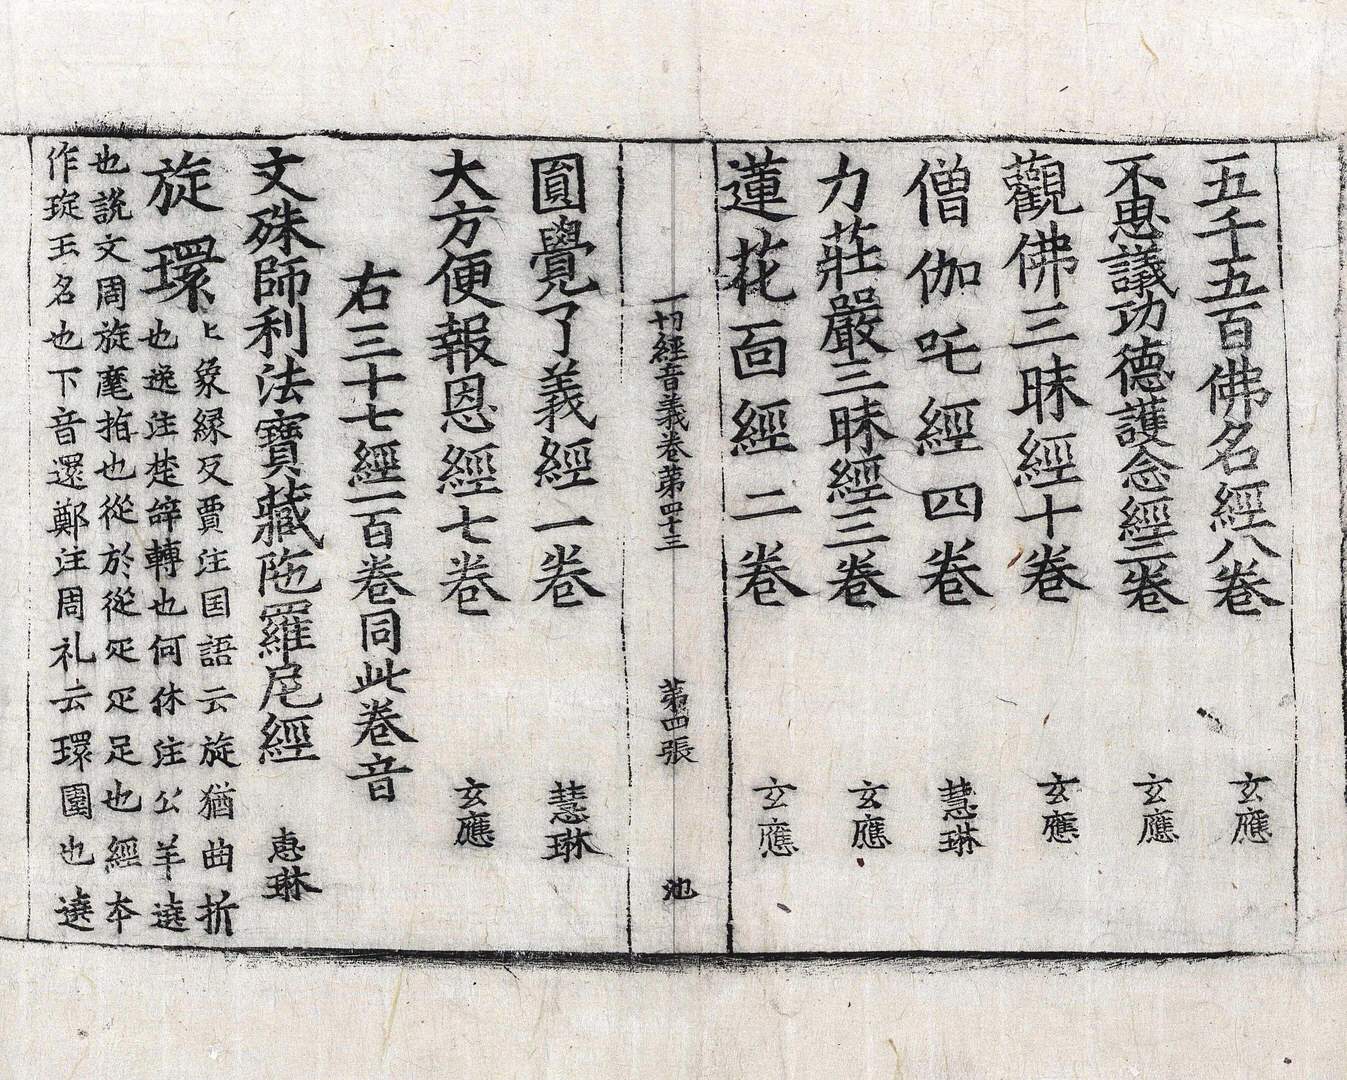 五千五百佛名經八卷 玄應
不思議功德護念經二卷 玄應
觀佛三昧經十卷 玄應
僧伽吒經四卷 慧琳
力莊嚴三昧經三卷 玄應
蓮花面經二卷 玄應
一切經音義卷第四十三 第四張 池
圎覺了義經一卷 慧琳
大方便報恩經七卷 玄應
右三十七經一百卷同此卷音
文殊師利法寶藏陁羅尼經 惠琳
旋環
上㒸縁反賈注国語云旋猶曲折
也逸注楚辝轉也何休注公羊遶
也說文周旋麾拍也從㫃從疋疋足也經本
作琁玉名也下音還鄭注周礼云環圍也遶